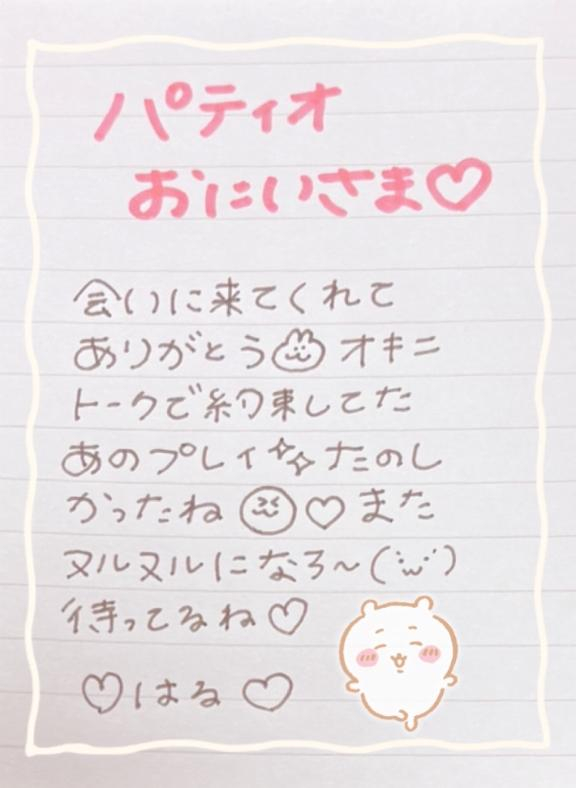 パティオ
おにいさま♡
会いに来てくれて
ありがとう オキニ
トークで約束してた
あのプレイ✨たのし
かったね ♡また
ヌルヌルになろ〜(˙꒳˙)
待ってるね♡
♡はる♡